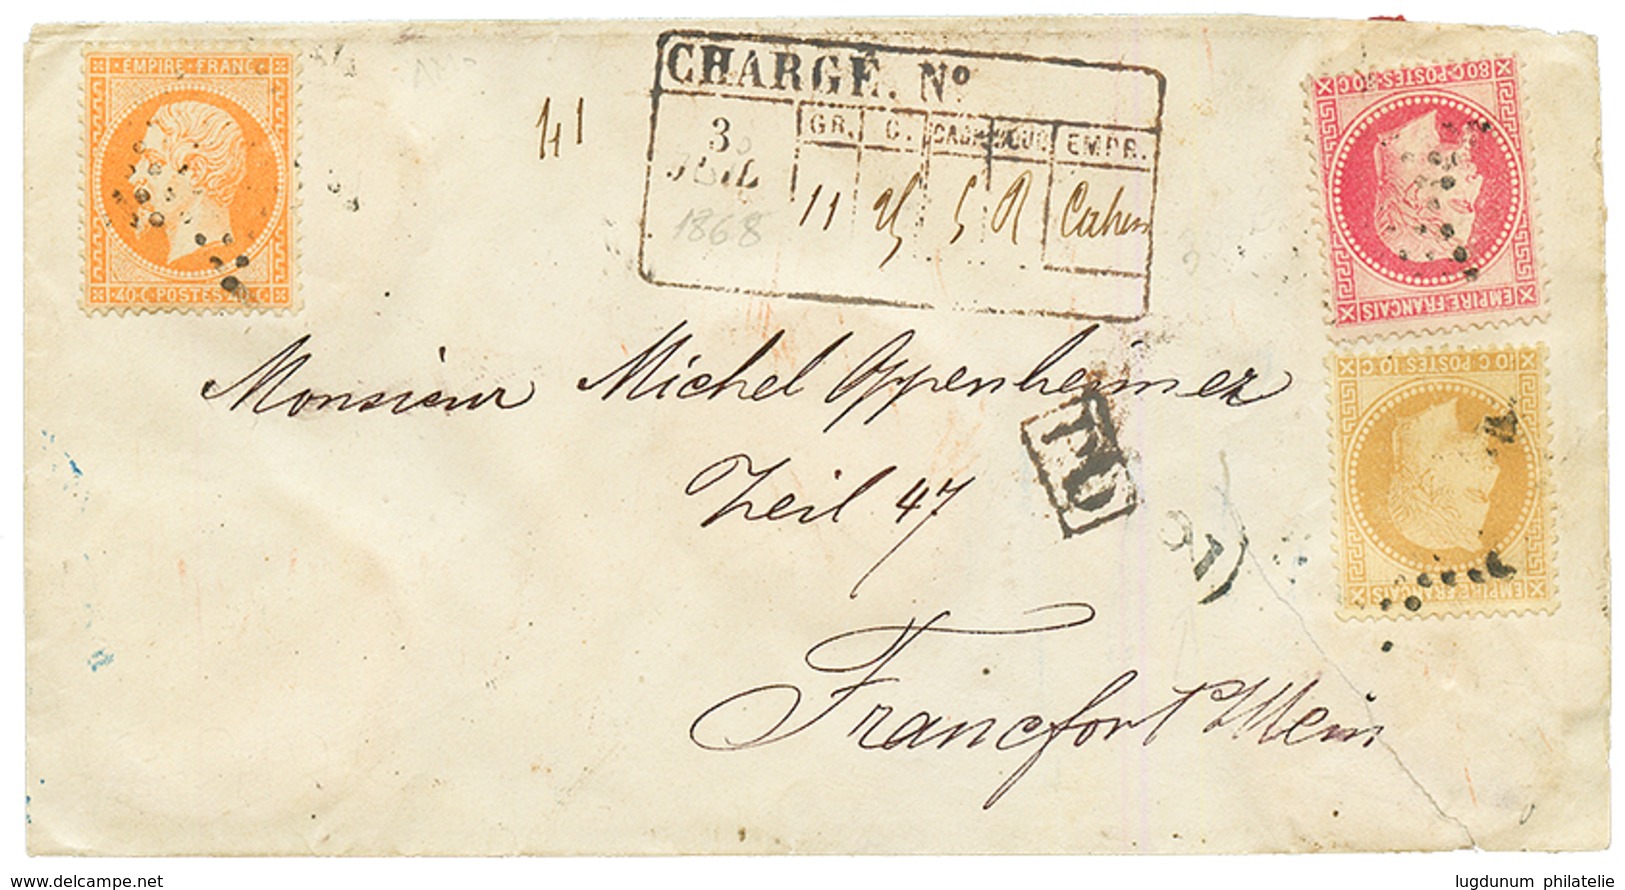 EMPIRE·FRANC
40·C·POSTES·40·C
141
CHARGÉ. Nº
3
JUIL
1868
GR. C. CACH EMPR.
11 25 5 R Cahen
80·C·POSTES·80·C
EMPIRE·FRANÇAIS
10·C·POSTES·10·C
EMPIRE·FRANÇAIS
PD
Monsieur Michel Oppenheimer
Zeil 47
Francfort s/Mein
delcampe.net
lugdunum philatelie